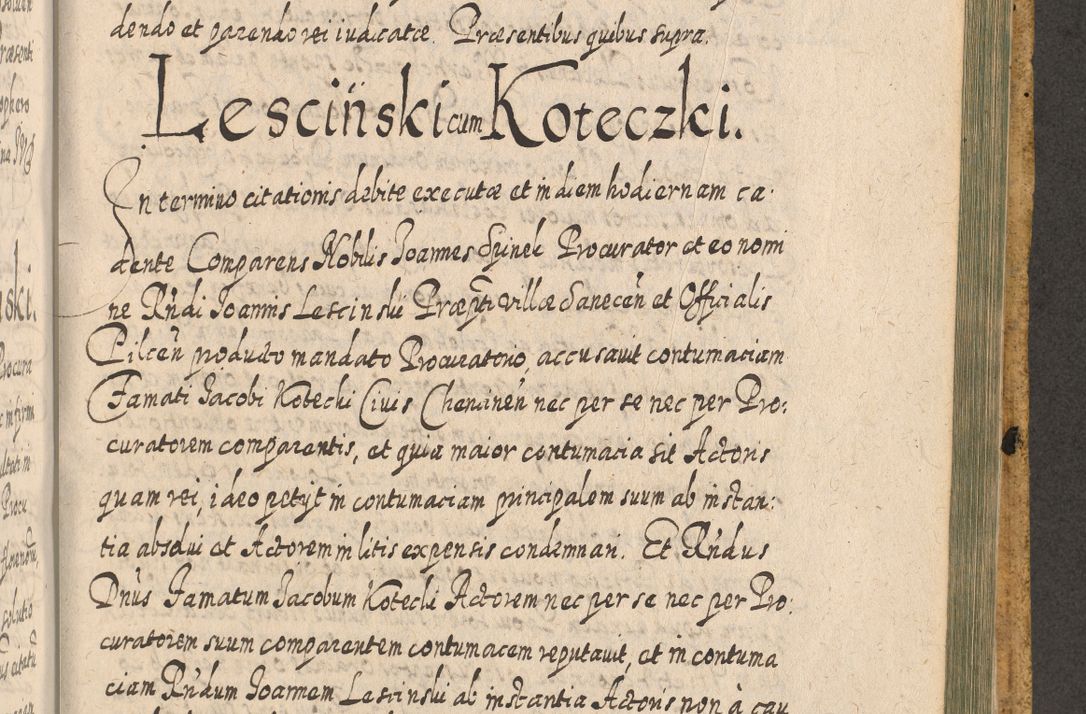 dendo et parendo rei iudicatæ. Præsentibus quibus supra.
Lesciński cum Koteczki.
In termino citationis debite executæ et in diem hodiernam ca-
dente Comparens Nobilis Joannes Spinek Procurator et eo nomi
ne Rn̄di Joannis Lescinski Præpti villæ Sanecen̄ et Officialis
Pilcen̄ producto mandato Procuratorio, accusavit contumaciam
Famati Jacobi Kotecki Civis Chencinen̄ nec per se nec per Pro:
curatorem comparentis, et quia maior contumacia sit Actoris
quam rei, ideo petijt in contumaciam principalem suum ab instan:
tia absolvi et Actorem in litis expensis condemnari. Et Rn̄dus
Dn̄us Famatum Jacobum Kotecki Actorem nec per se nec per Pro:
curatorem suum comparentem contumacem reputavit, et in contuma
ciam Rn̄dum Joannem Lescinski ab instantia Actoris non à cau